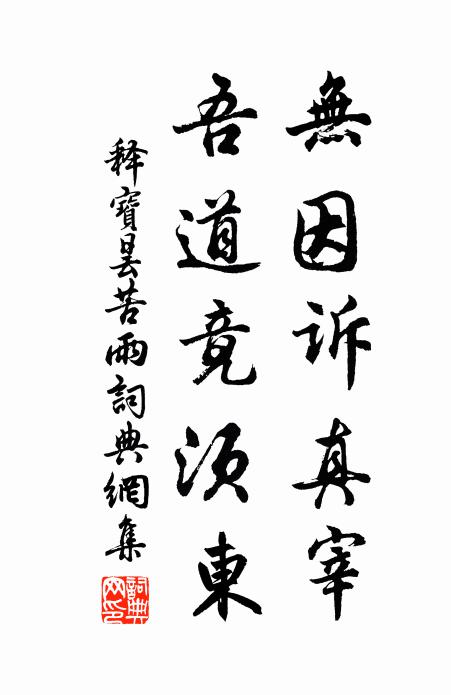 無因訴真宰
吾道竟須東
释寶曇苦雨詞典網集
詞典網印